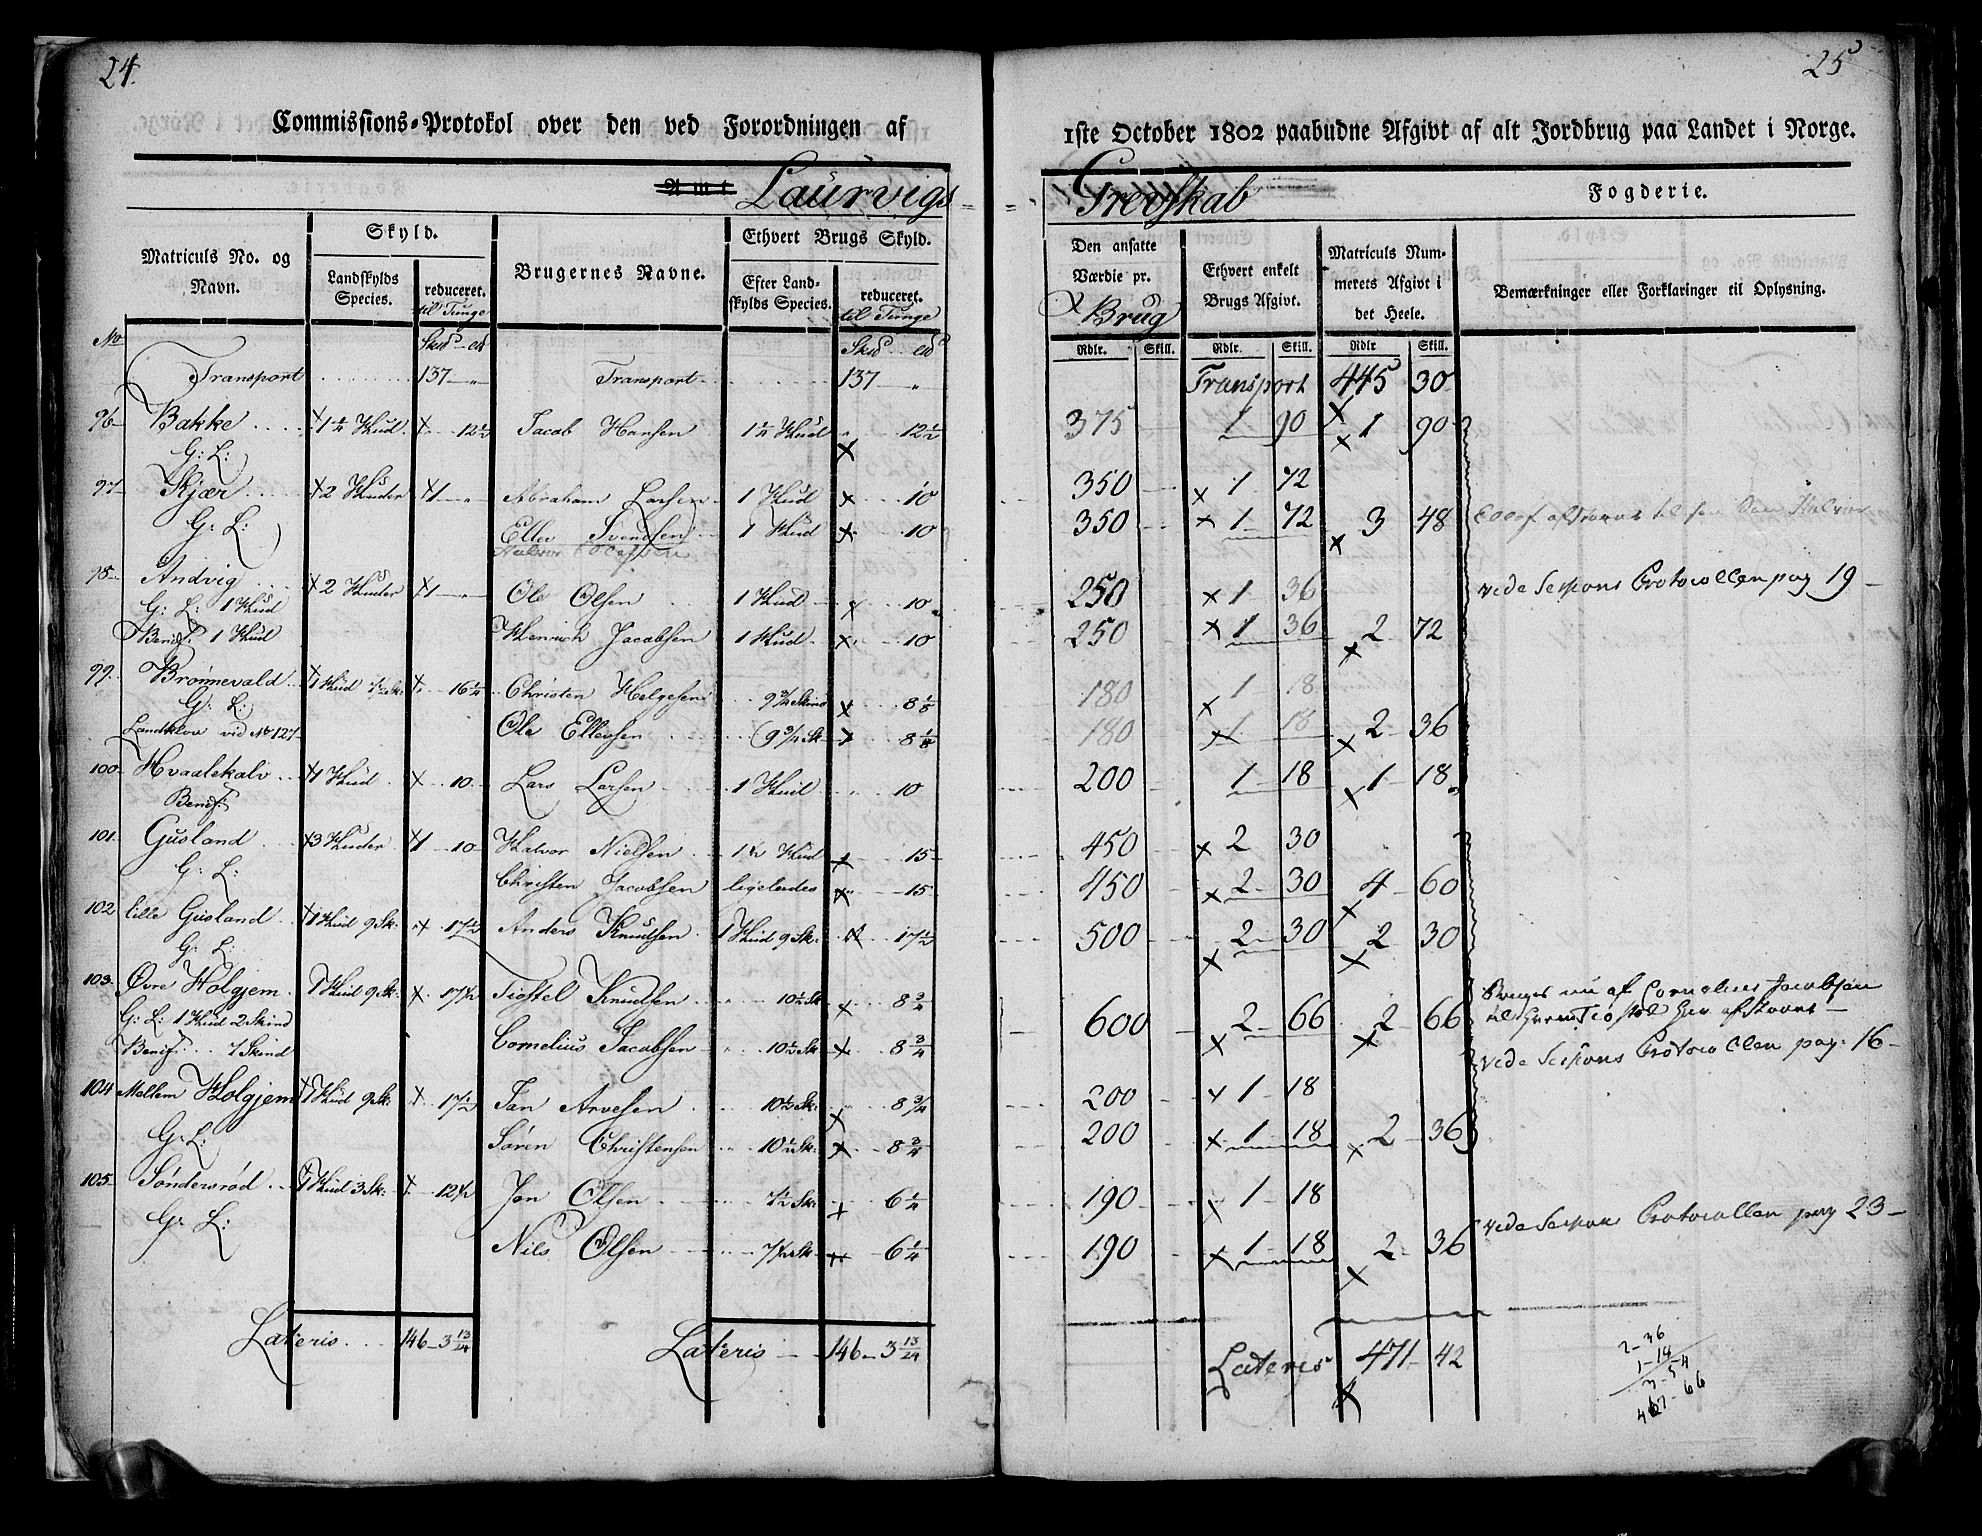 24.
Commissions-Protokol over den ved Forordningen af
Amt Laurvigs
Matriculs No. og Navn.
Skyld.
Landskylds Species.
reduceret. til Tunge
Brugernes Navne.
Ethvert Brugs Skyld.
Efter Landskylds Species.
reduceret. til Tunge
No Skd Skd
Transport 137 „ Transport 137 „
96 Bakke 1 1/4 Hud 12 1/2 Jacob Hansen 1 1/4 Hud 12 1/2
G: L:
97 Kjær 2 Huder 1 „ Abraham Larsen 1 Hud 10
G: L: Ellev Svendsen 1 Hud 10
Halvor
98 Andvig 2 Huder 1 „ Ole Olsen 1 Hud 10
G: L: 1 Hud
Benif: 1 Hud Henrich Jacobsen 1 Hud 10
99 Brønnevald 1 Hud 7 1/2 Sk: 16 1/4 Christen Helgesen 9 3/4 Skind 8 1/8
G: L:
Landklov vid No 127 Ole Ellevsen 9 3/4 Sk 8 1/8
100 Hvaalekalv 1 Hud 10 Lars Larsen 1 Hud 10
Benif:
101. Gusland 3 Huder 1 10 Halvor Nielsen 1 1/2 Hud 15
G: L: Christen Jacobsen ligeledes 15
102 Lille Gusland 1 Hud 9 Sk: 17 1/2 Anders Knudsen 1 Hud 9 Sk: 17 1/2
G: L:
103. Øvre Holgjem 1 Hud 9 Sk: 17 1/2 Tiostel Knudsen 10 1/2 Sk 8 3/4
G: L: 1 Hud 2 Skind
Benif: 7 Skind Cornelius Jacobsen 10 1/2 Sk 8 3/4
104 Mellem Holgjem 1 Hud 9 Sk: 17 1/2 Jan Arvesen 10 1/2 Sk: 8 3/4
G: L: Søren Christensen 10 1/2 Sk: 8 3/4
105 Søndersrød 1 Hud 3 Sk: 12 1/2 Jon Olsen 7 1/2 Sk: 6 1/4
G: L: Nils Olsen 7 1/2 Sk 6 1/4
Lateris 146 3 13/24 Lateris 146 3 13/24
25
1ste October 1802 paabudne Afgivt af alt Jordbrug paa Landet i Norge.
Grevskab Fogderie.
Den ansatte Værdie pr. Brug
Ethvert enkelt Brugs Afgivt.
Matriculs Nummerets Afgivt i det Heele.
Bemærkninger eller Forklaringer til Oplysning.
Rdlr. Skill. Rdlr. Skill. Rdlr Skill.
Transport 445 30
375 1 90 1 90
350 1 72
350 1 72 3 48
250 1 36 vide Sessions Protocollen pag 19
250 1 36 2 72
180 1 18
180 1 18 2 36
200 1 18 1 18
450 2 30
450 2 30 4 60
500 2 30 2 30
Bruges nu af Cornelius Jacobsen
600 2 66 2 66
vide Sessions Protocollen pag: 16
200 1 18
200 1 18 2 36
190 1 18
vide Sessions Protocollen pag 23
190 1 18 2 36
Lateris 471 42
2-36
1-18
3-54
467-66